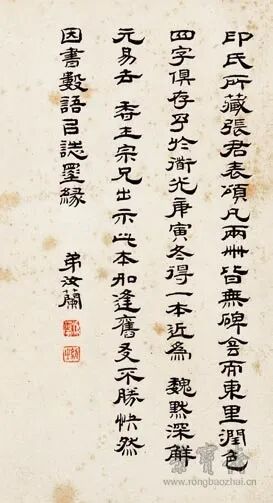 印氏所藏張君表頌凡兩冊皆無碑侌而東里潤色
四字俱存予於衜光庚寅冬得一本近爲 魏默深解
元易去 香圭宗兄出示此本如逢舊友不勝快然
因書數語㠯誌墨緣
弟汝蘭
www.rongbaozhai.cn